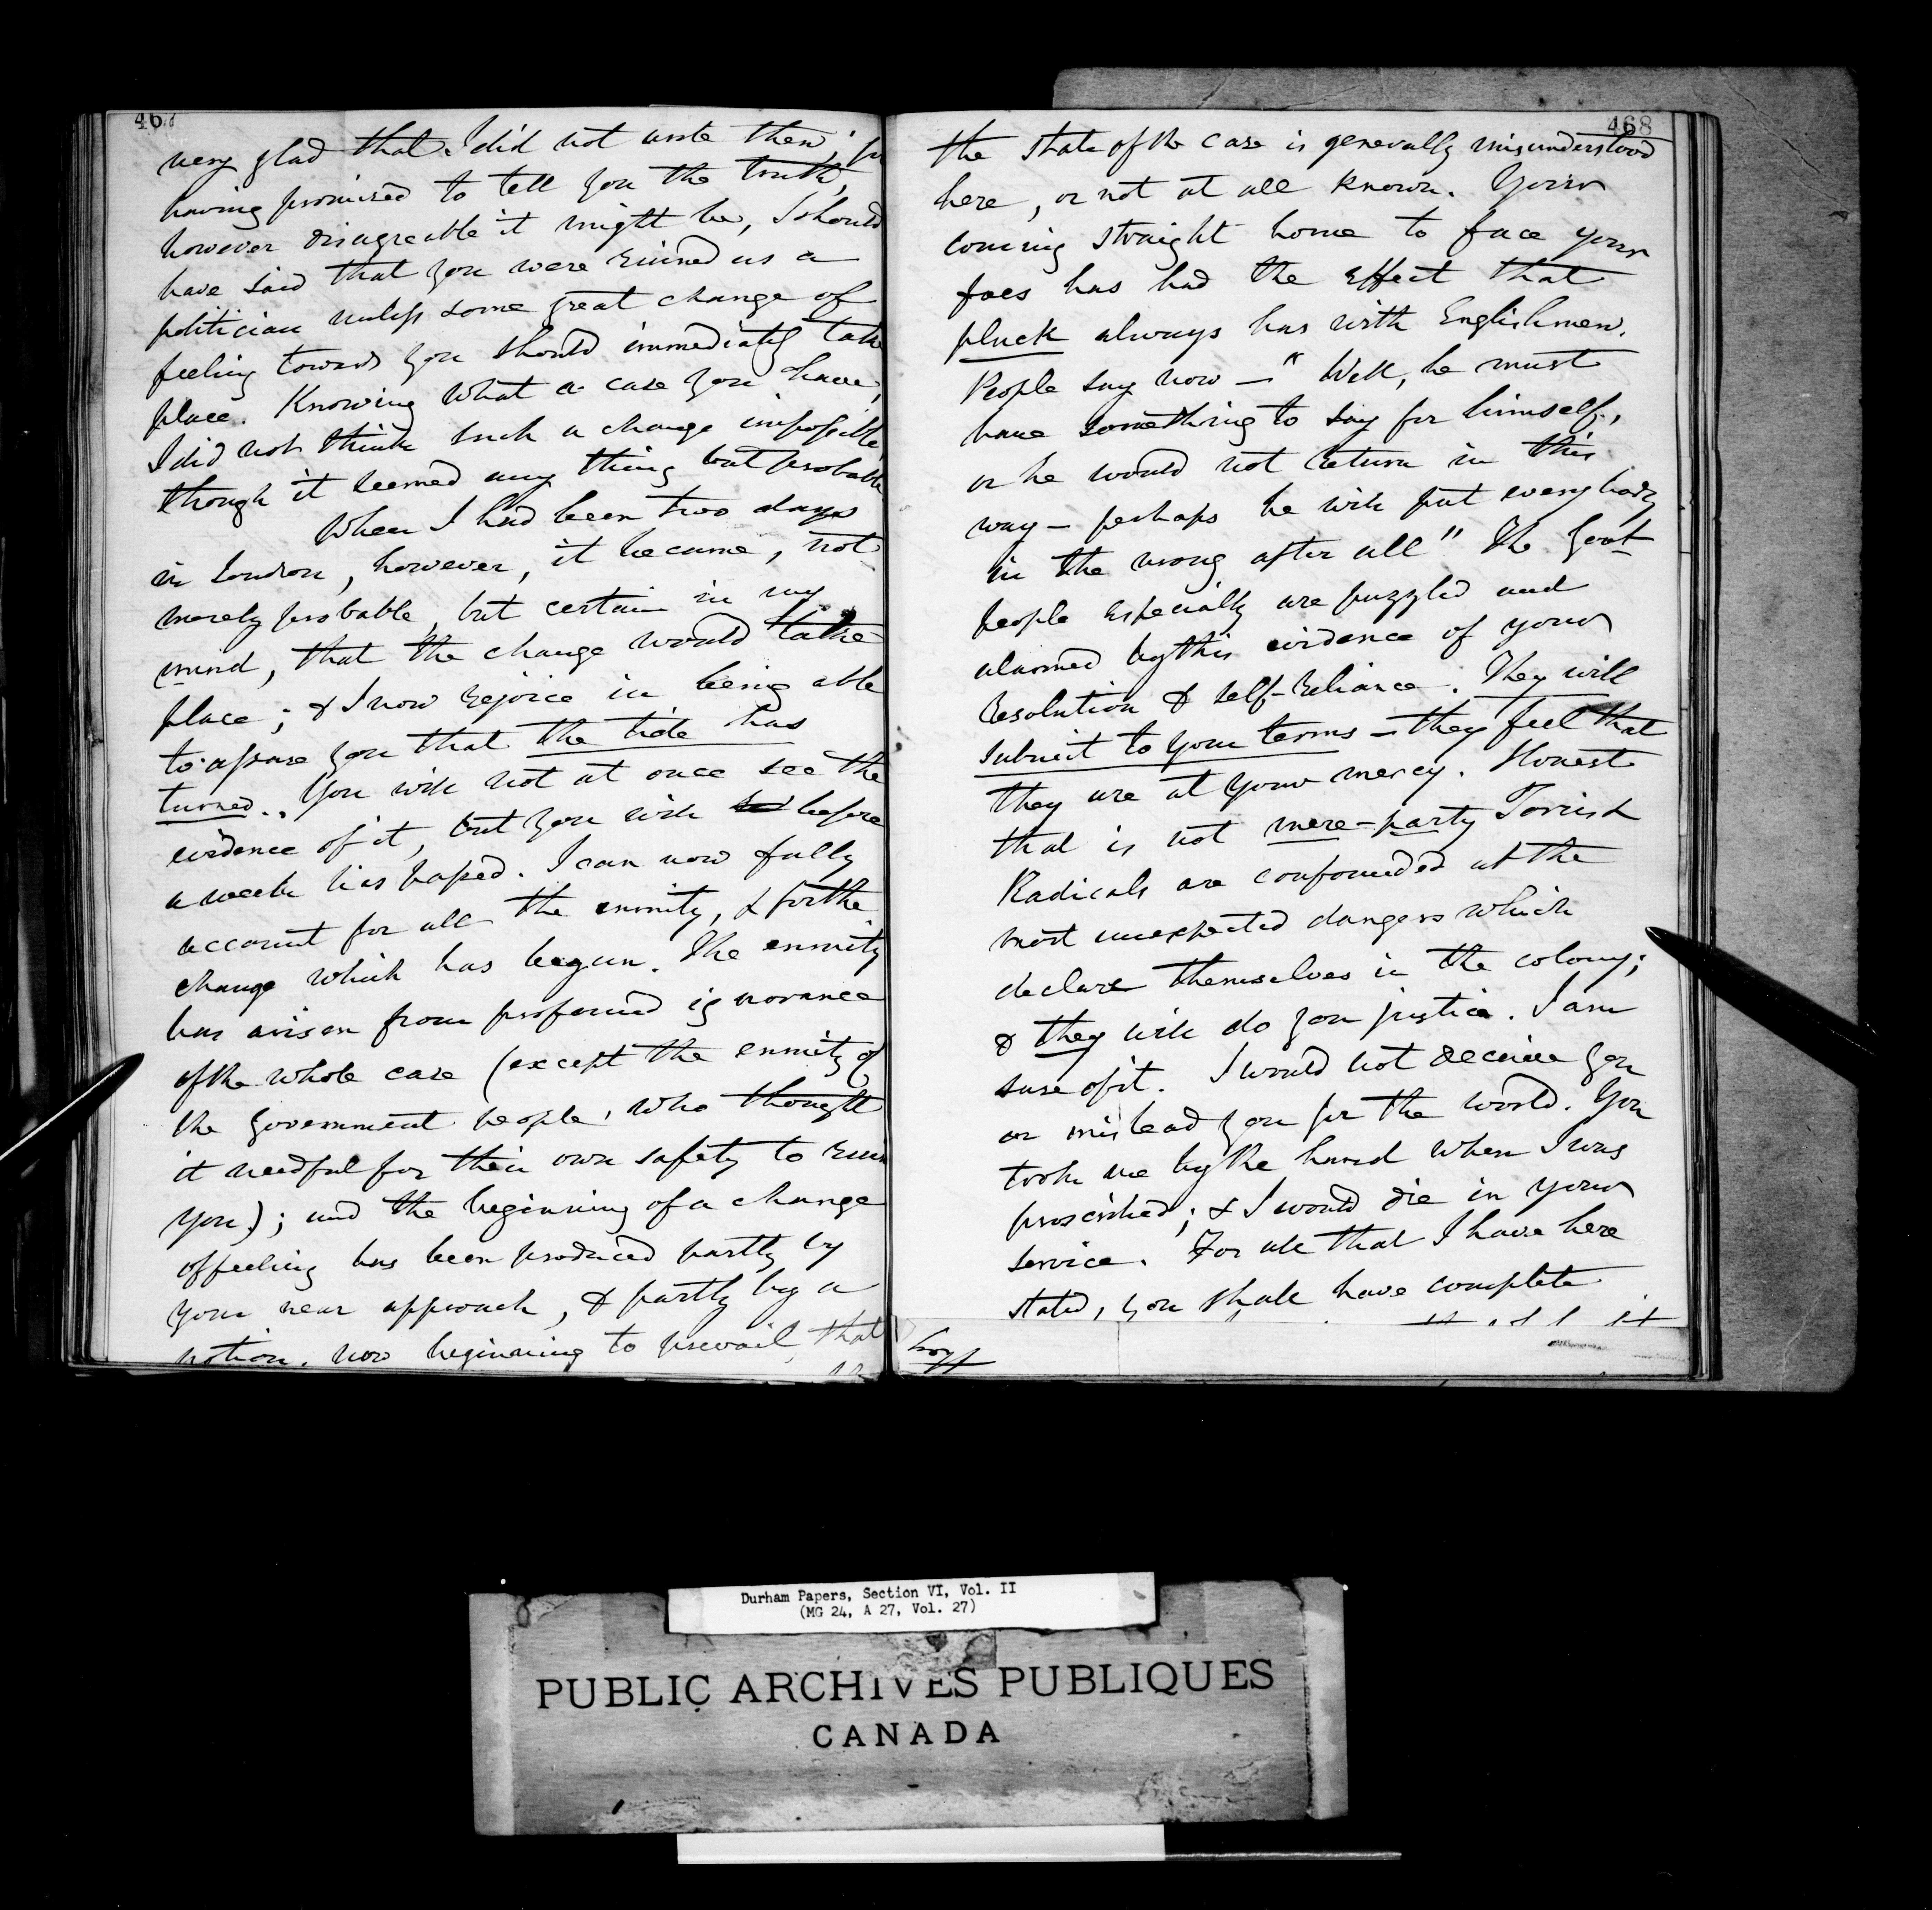 467
very glad that I did not write then; for
having promised to tell you the truth,
however disagreeable it might be, I should
have said that you were ruined as a
politician unless some great change of
feeling towards you should immediately take
place. Knowing what a case you have,
I did not think such a change impossible,
though it seemed any thing but probable
When I had been two days
in London, however, it became, not
merely probable, but certain in my
mind, that the change would take
place; & I now rejoice in being able
to assure you that the tide has
turned.. You will not at once see the
evidence of it, but you will before
a week has passed. I can now fully
account for all the enmity, & for the
change which has begun. The enmity
has arisen from profound ignorance
of the whole case (except the enmity of
the government people, who thought
it needful for their own safety to ruin
you); and the beginning of a change
of feeling has been produced partly by
your near approach, & partly by a
notion, now beginning to prevail, that
468
the state of the case is generally misunderstood
here, or not at all known. Your
coming straight home to face your
foes has had the effect that
pluck always has with Englishmen.
People say now – "Well, he must
have something to say for himself,
or he would not return in this
way – perhaps he will put every body
in the wrong after all" The Govt
people especially are puzzled and
alarmed by this evidence of your
resolution & self-reliance. They will
submit to your terms – they feel that
they are at your mercy. Honest
that is not mere-party Torrish
Radicals are confounded at the
most unexpected dangers which
declare themselves in the colony;
& they will do you justice. I am
sure of it. I would not deceive you
or mislead you for the world. You
took me by the hand when I was
proscribed; & I would die in your
service. For all that I have here
stated, you shall have complete
Durham Papers, Section VI, Vol. II
(MG 24, A 27, Vol. 27)
PUBLIC ARCHIVES PUBLIQUES
CANADA